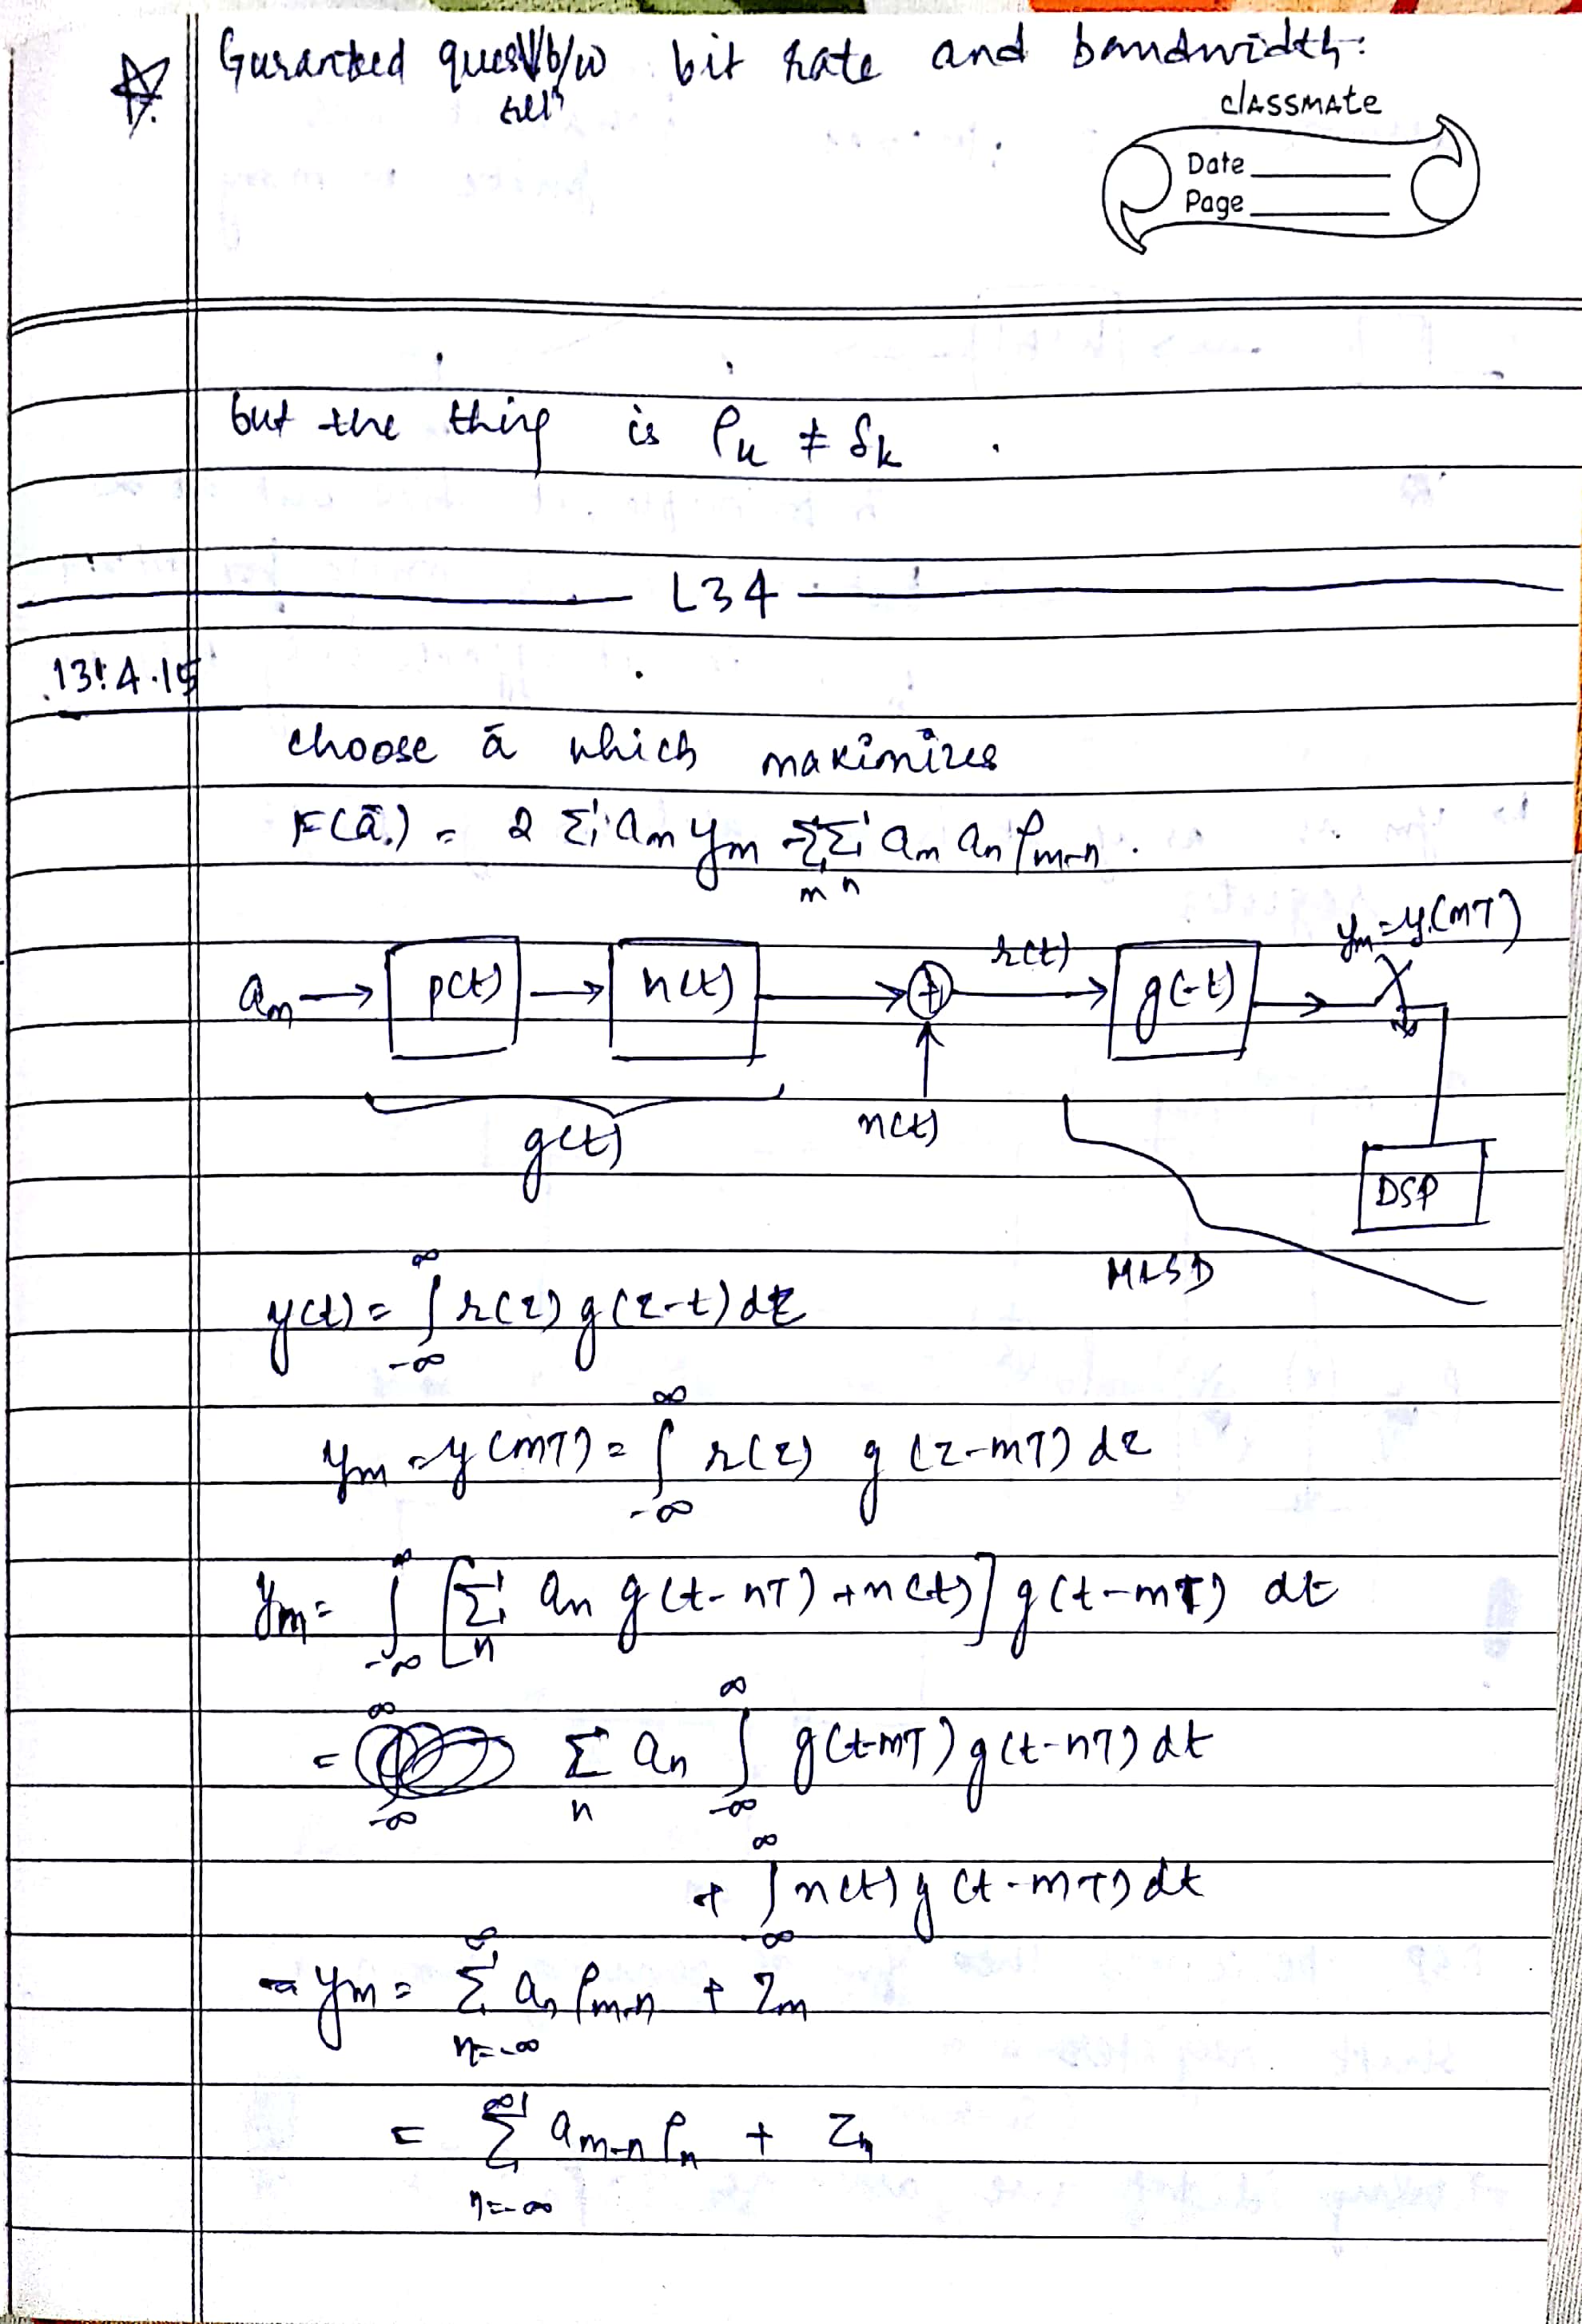 Guranteed ques b/w bit rate and bandwidth:
reln
classmate
Date
Page
but the thing is ρk ≠ δk .
L34
13.4.15
choose ā which maximizes
F(ā) = 2 Σ am ym - ΣΣ am an ρm-n .
m n
ym = y(mT)
r(t)
am → p(t) → h(t) → + → g(-t) →
g(t)
n(t)
DSP
MLSD
y(t) = ∫_{-∞}^{∞} r(τ) g(τ-t) dτ
ym = y(mT) = ∫_{-∞}^{∞} r(τ) g(τ-mT) dτ
ym = ∫_{-∞}^{∞} [Σ_n an g(t-nT) + n(t)] g(t-mT) dt
= Σ_n an ∫_{-∞}^{∞} g(t-mT) g(t-nT) dt
+ ∫_{-∞}^{∞} n(t) g(t-mT) dt
ym = Σ_{n=-∞}^{∞} an ρm-n + Zm
= Σ_{n=-∞}^{∞} am-n ρn + Zm